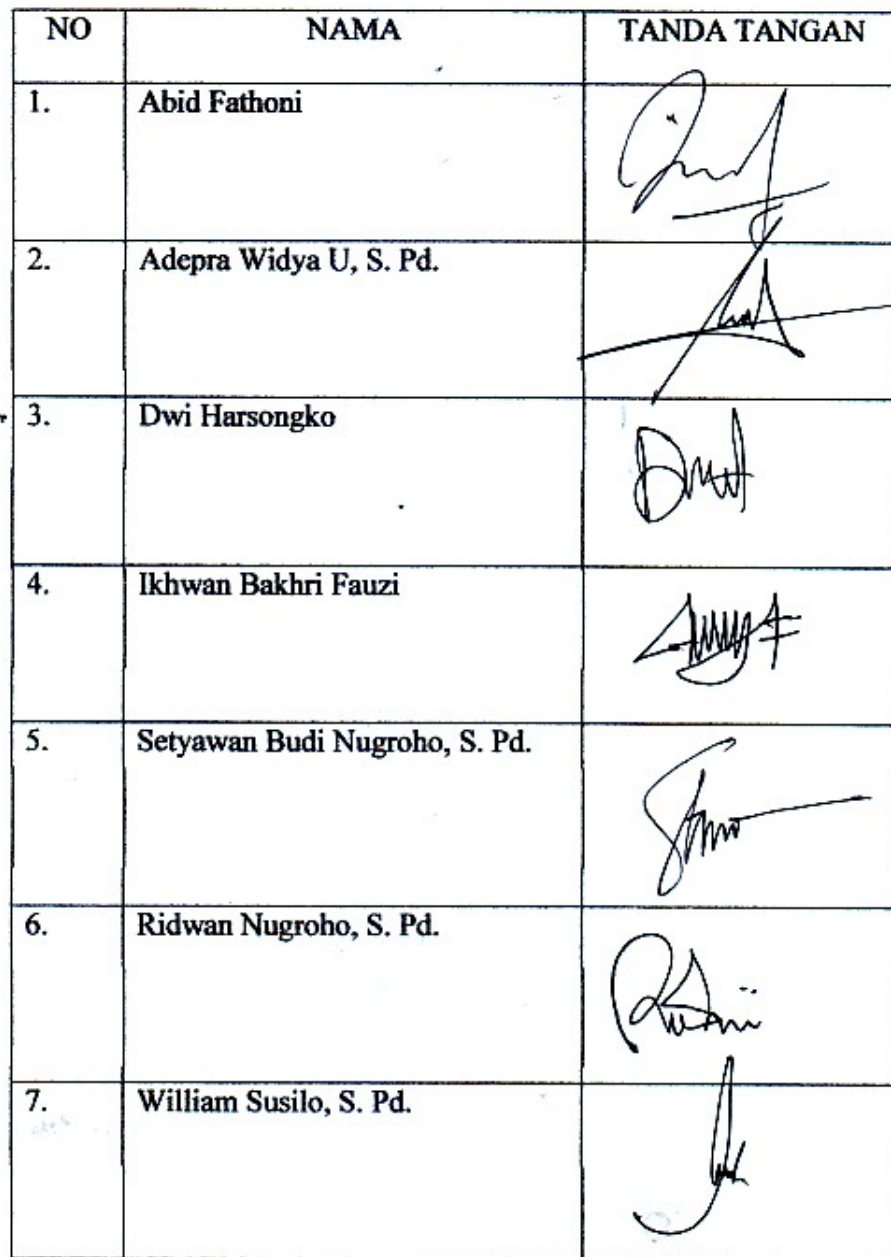 NO NAMA TANDA TANGAN
1. Abid Fathoni
2. Adepra Widya U, S. Pd.
3. Dwi Harsongko
4. Ikhwan Bakhri Fauzi
5. Setyawan Budi Nugroho, S. Pd.
6. Ridwan Nugroho, S. Pd.
7. William Susilo, S. Pd.